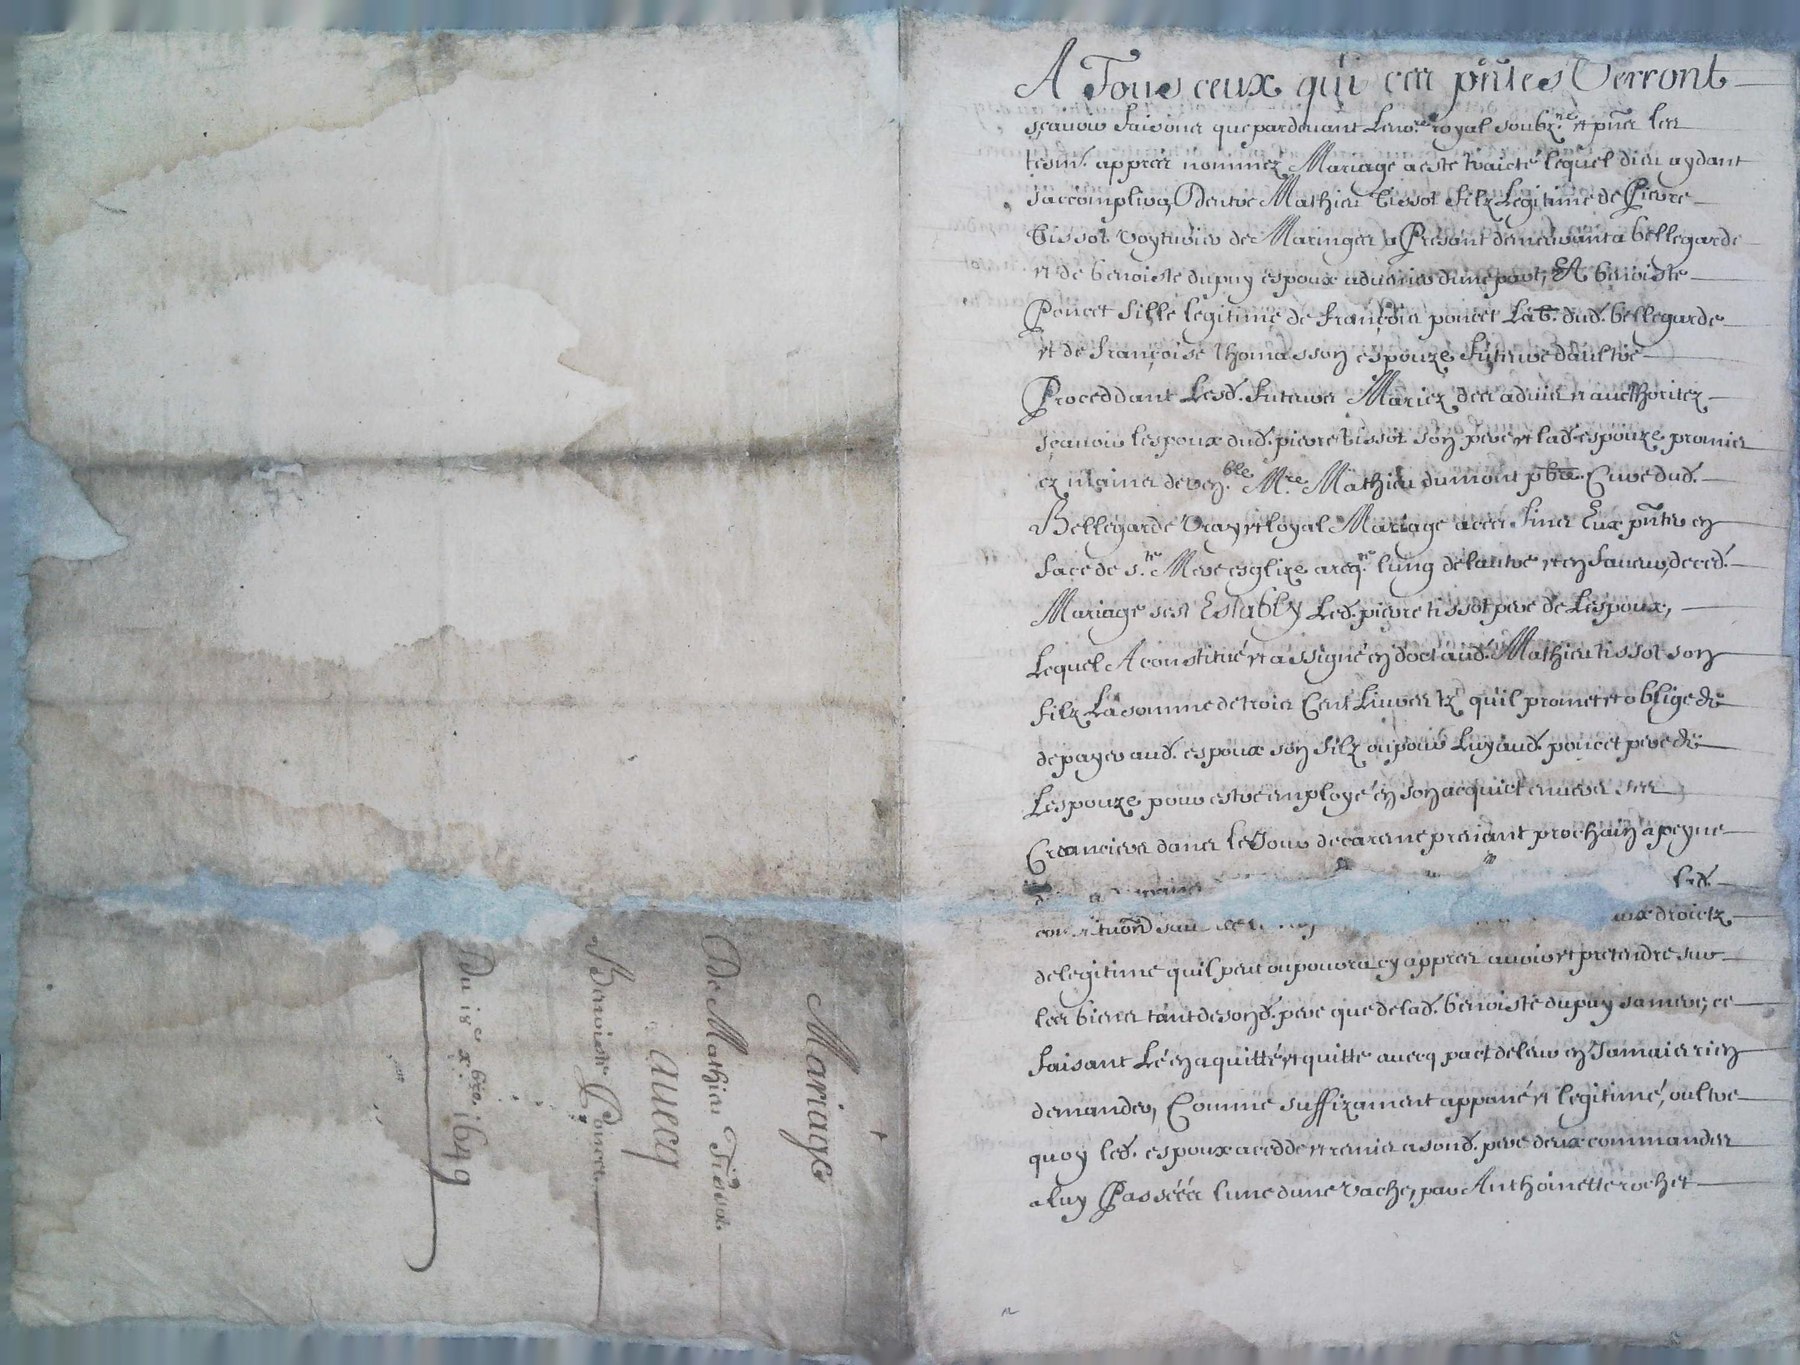 A Tous ceux qui ces pñtes Verront
sçavoir faisons que pardevant le no.re royal soubz.né et pñs les
tesm. appres nommez Mariage a esté traicté lequel dieu aydant
saccomplira, Dentre Mathieu tissot filz Legitime de Pierre
tissot voyturier de Maringes a Presant demeurant a bellegarde
et de benoiste dupuy espoux advenir dune part, Et benoiste
Poncet fille legitime de françois poncet Lab. dud. bellegarde
et de françoise thomasson espouze future daultre
Proceddant Lesd. futurs Mariez des advis et aucthoritez
sçavoir lespoux dud. pierre tissot son pere et lad. espouze promis
ez mains de ven.ble M.re Mathieu dumont pbre. Cure dud.
Bellegarde vray et loyal Mariage a ces fins Eux pñter en
face de s.te Mere esglize avecq lung de lautre et en faveur de ced.
Mariage sest Estably Led. pierre tissot pere de Lespoux,
Lequel A constitué et assigné en doct aud. Mathieu tissot son
filz La somme de trois Cent Livres tz quil promet et oblige de
de payer aud. espoux son filz ou pour Luy aud. poncet pere de
Lespouze pour estre employé en son acquict envers ses
Creanciers dans le Jour de careme prenant prochain a peyne
led.
droictz
de legitime quil peut ou pourra cy appres avoir et pretendre sur
les biens tant de sond. pere que de lad. benoiste dupuy sa mere, ce
faisant Le en a quitté et quitte avecq pact de leur en Jamais rien
demander, Comme suffizament appané et legitimé, oultre
quoy led. espoux a cedde et remis a sond. pere deux commandes
a luy Passées lune dune vache, par Anthoinette rochet
Mariage
De Mathieu Tissot
avecq
Benoiste Poncet
Du 18e x.bre 1649